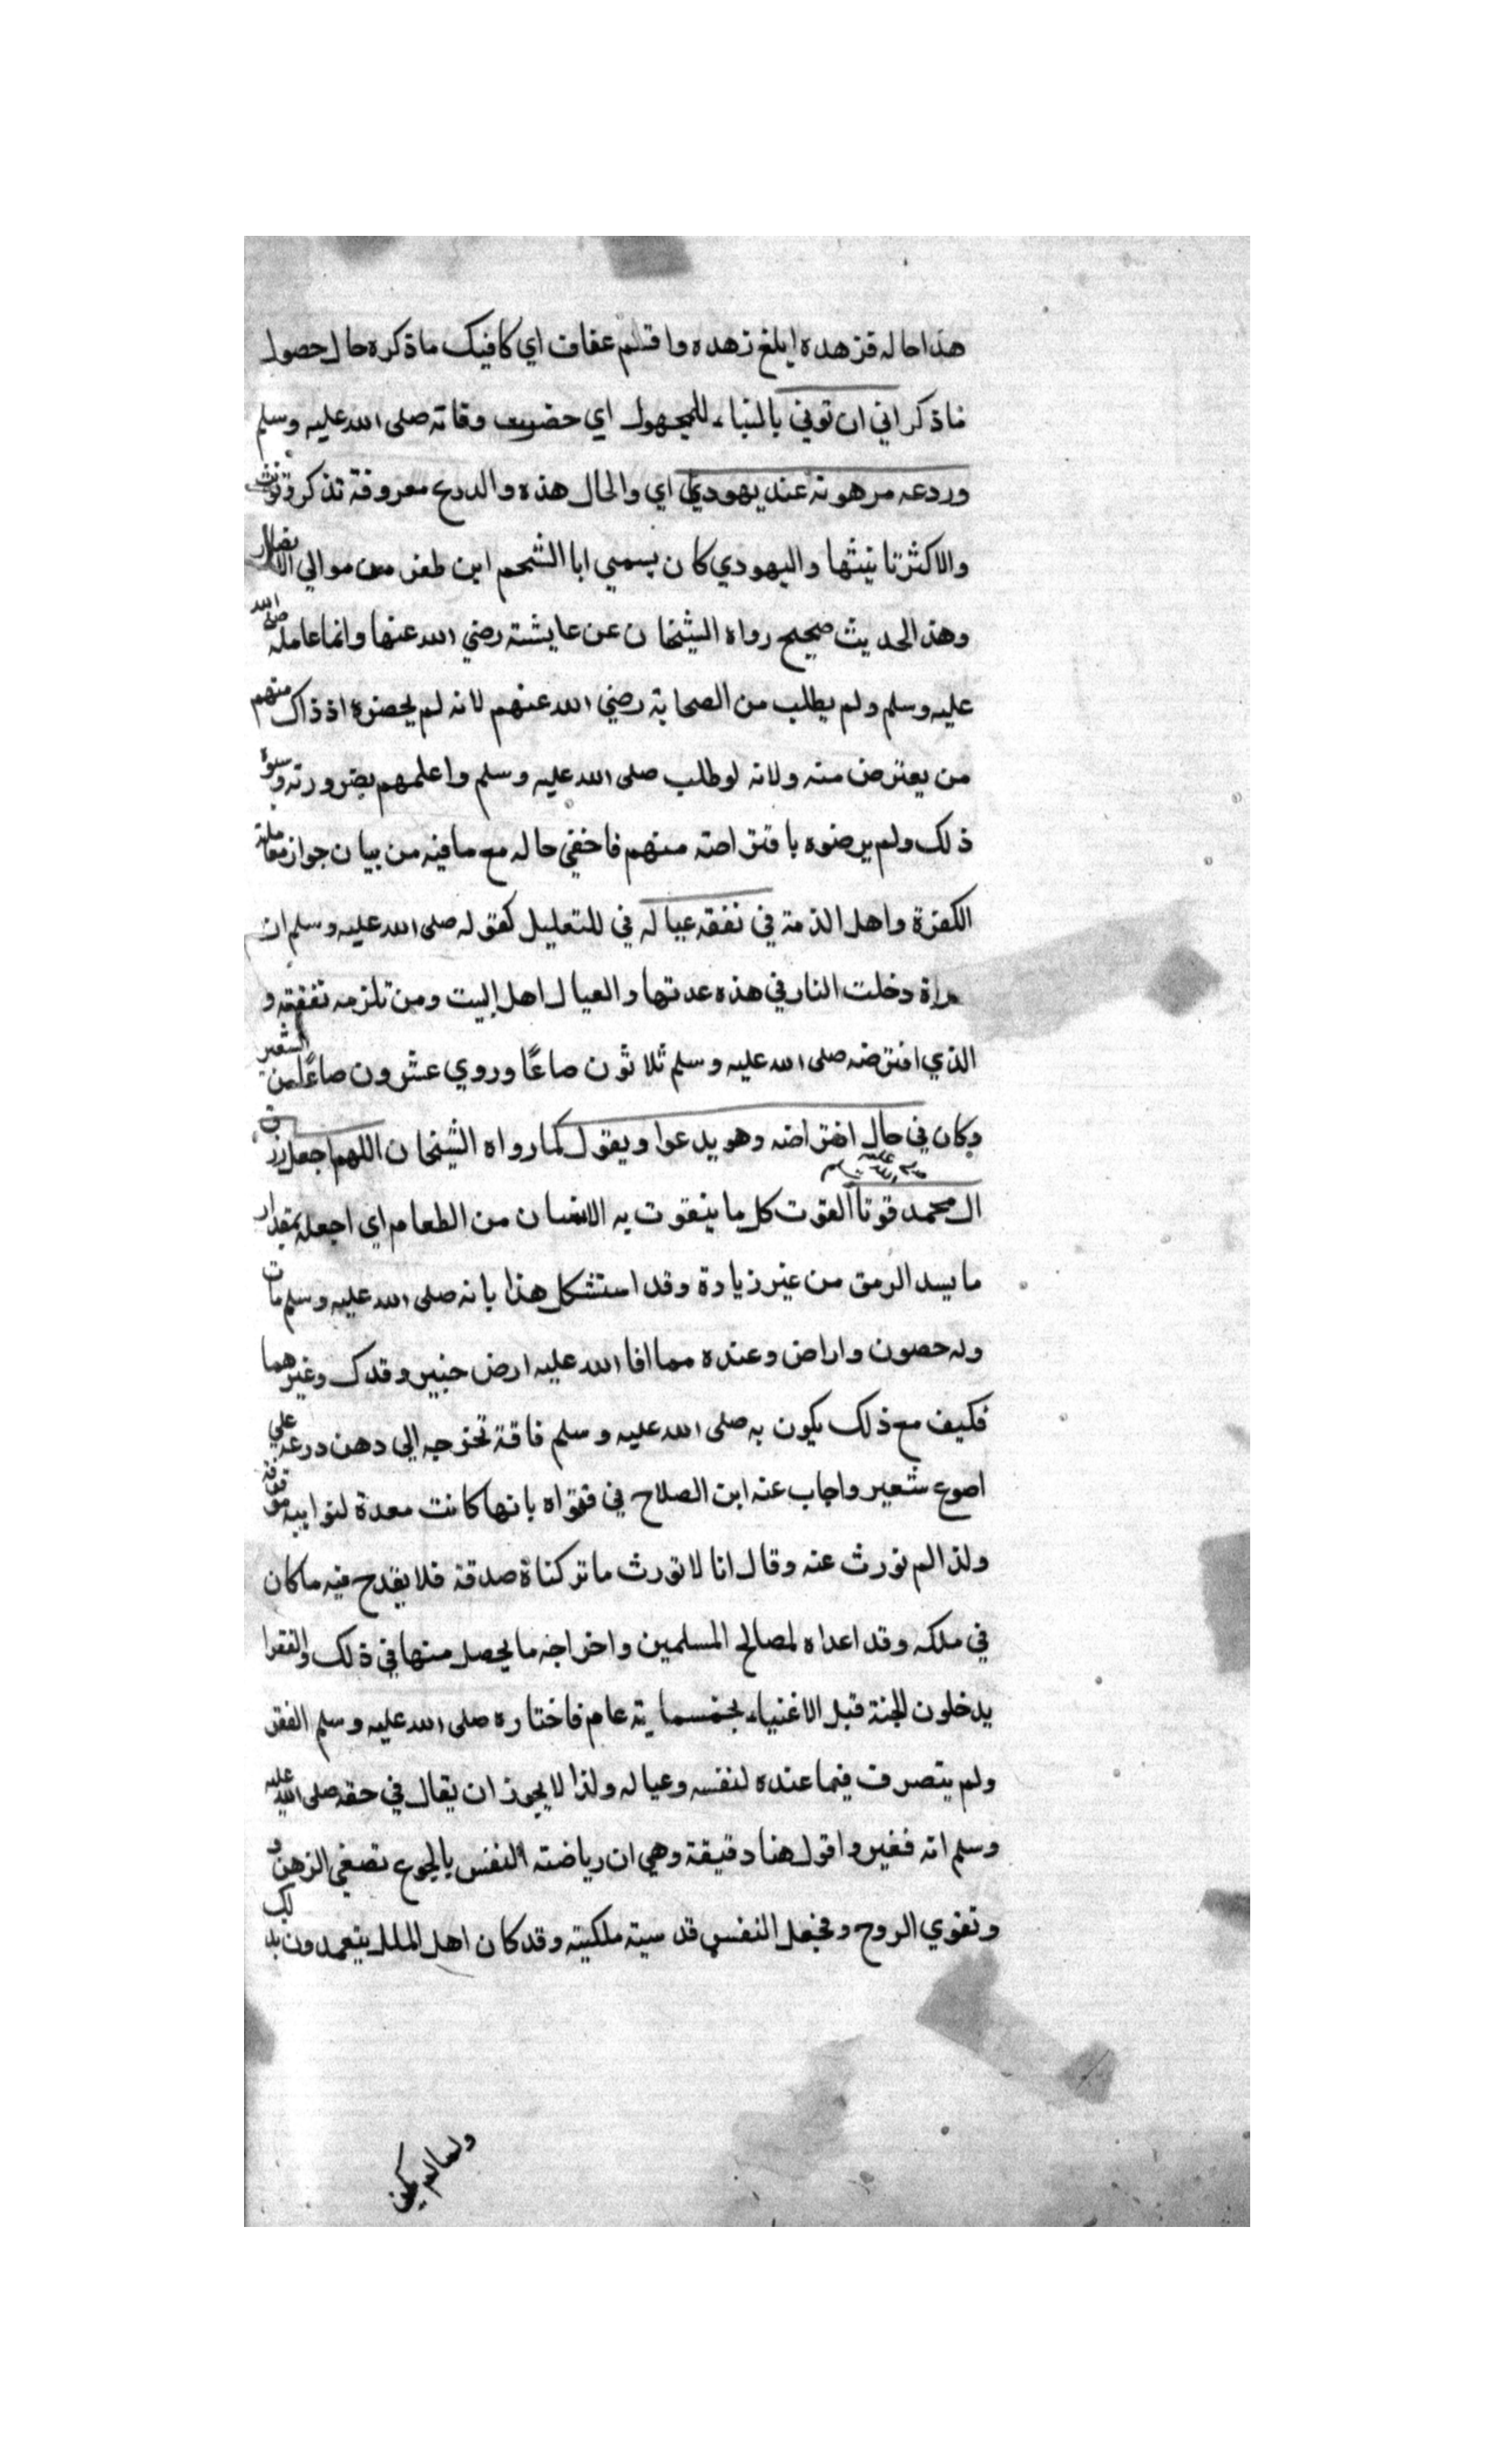 هذا حاله فزهده ابلغ زهده واقتلم عفاف اي كافيك ما ذكره حال حصول
ما ذكر اني ان توفي بالبناء للمجهول اي حضرت وفاته صلى الله عليه وسلم
ودرعه مرهونة عند يهودي اي والحال هذه والدرع معروفة تذكر وتؤنث
والاكثر تانيثها واليهودي كان يسمى ابا الشحم ابن ظفر من موالي الانصار
وهذا الحديث صحيح رواه الشيخان عن عايشة رضي الله عنها وانما عامله صلى الله
عليه وسلم ولم يطلب من الصحابة رضي الله عنهم لانه لم يحضره اذ ذاك منهم
من يعترض منه ولانه لو طلب صلى الله عليه وسلم واعلمهم بضرورته
ذلك ولم يرضوه باقتراضه منهم فاخفي حاله مع ما فيه من بيان جواز معاملة
الكفرة واهل الذمة في نفقة عياله في للتعليل كقوله صلى الله عليه وسلم ان
مراة دخلت النار في هذه عدتها والعيال اهل البيت ومن تلزمه نفقته و
الذي اقترضه صلى الله عليه وسلم ثلاثون صاعًا وروي عشرون صاعًا من الشعير
وكان في حال اقتراضه وهو يدعوا ويقول كما رواه الشيخان اللهم اجعل رزق
ال محمد صلى الله عليه وسلم قوتا القوت كل ما يتقوت به الانسان من الطعام اي اجعله بمقدار
ما يسد الرمق من غير زيادة وقد استشكل هذا بانه صلى الله عليه وسلم مات
وله حصون واراض وعنده مما افا الله عليه ارض خيبر وفدك وغيرهما
فكيف مع ذلك يكون به صلى الله عليه وسلم فاقة تحوجه الى رهن درعه علي
اصوع شعير واجاب عنه ابن الصلاح في فتواه بانها كانت معدة لنوايبه
ولذا لم تورث عنه وقال انا لا نورث ما تركناه صدقة فلا يقدح فيه ما كان
في ملكه وقد اعداه لمصالح المسلمين واخراجه ما يحصل منها في ذلك والفقرا
يدخلون الجنة قبل الاغنياء بخمسماية عام فاختاره صلى الله عليه وسلم الفقر
ولم يتصرف فيما عنده لنفسه وعياله ولذا لا يجوز ان يقال في حقه صلى الله عليه
وسلم انه فقير واقول هنا دقيقة وهي ان رياضته النفس بالجوع تصفي الذهن
وتقوي الروح وتجعل النفس قدسية ملكية وقد كان اهل الملل يتعمدون بذلك
ولما لم يكن